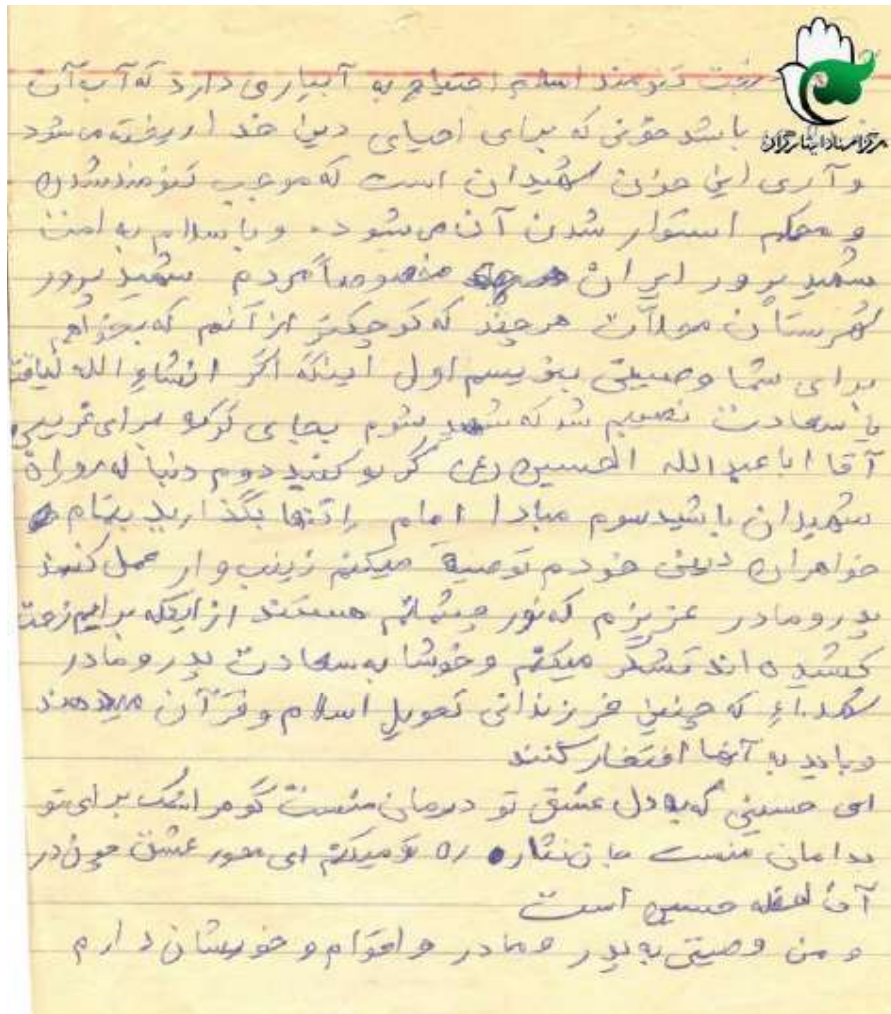 درخت تنومند اسلام احتیاج به آبیاری دارد که آب آن
باشد خونی که برای احیای دین خدا ریخته می شود
مرکز اسناد ایثارگران
و آری این خون شهیدان است که موجب تنومند شدن
و محکم استوار شدن آن می شود. و با سلام به امت
شهید پرور ایران مخصوصاً مردم شهید پرور
شهرستان محلات هر چند که کوچکتر از آنم که بخواهم
برای شما وصیتی بنویسم اول اینکه اگر انشاء الله لیاقت
یا سعادت نصیبم شد که شهید شوم بجای گریه برای غریبی
آقا ابا عبدالله الحسین (ع) گریه کنید دوم دنباله رو راه
شهیدان باشید سوم مبادا امام را تنها بگذارید بتمام
خواهران دینی خودم توصیه میکنم زینب وار عمل کنند
پدر و مادر عزیزم که نور چشمانم هستند از اینکه برایم زحمت
کشیده اند تشکر میکنم و خوشا به سعادت پدر و مادر
شهداء که چنین فرزندانی تحویل اسلام و قرآن میدهند
و باید به آنها افتخار کنند
ای حسینی که به دل عشق تو درمان منست گوهر اشک برای تو
بدامان منست جان نثار ره تو میکنم ای محور عشق چون در
آن لحظه حسین است
و من وصیتی به پدر و مادر و اقوام و خویشان دارم